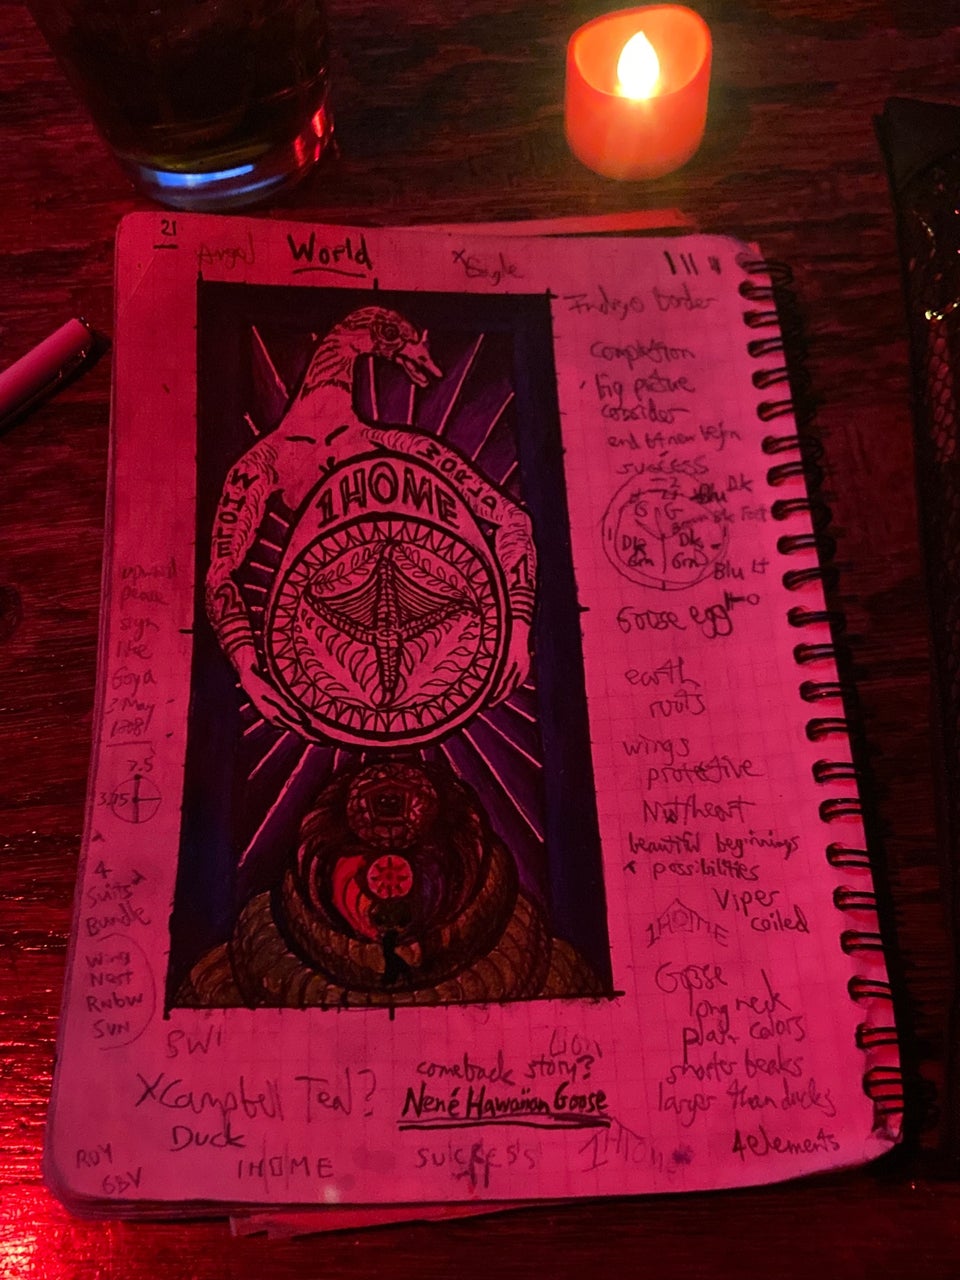 21
Angel World
Indigo Border
completion
big picture
success
WHOLE
WORLD
1HOME
2
1
Dk
Dk
Grn
Grn
Blu Lt
Goose egg
earth
roots
wings
protective
beautiful beginnings
possibilities
Viper
coiled
1HOME
Goose
long neck
plain colors
shorter beaks
larger than ducks
4 elements
sign
like
Goya
3 May
1808
7.5
3.75
4
Suits
Bundle
Wing
Nest
Rnbw
Sun
Lion
comeback story?
Nené Hawaiian Goose
XCampbell Teal?
Duck
1HOME
success
1Home
ROY
GBV